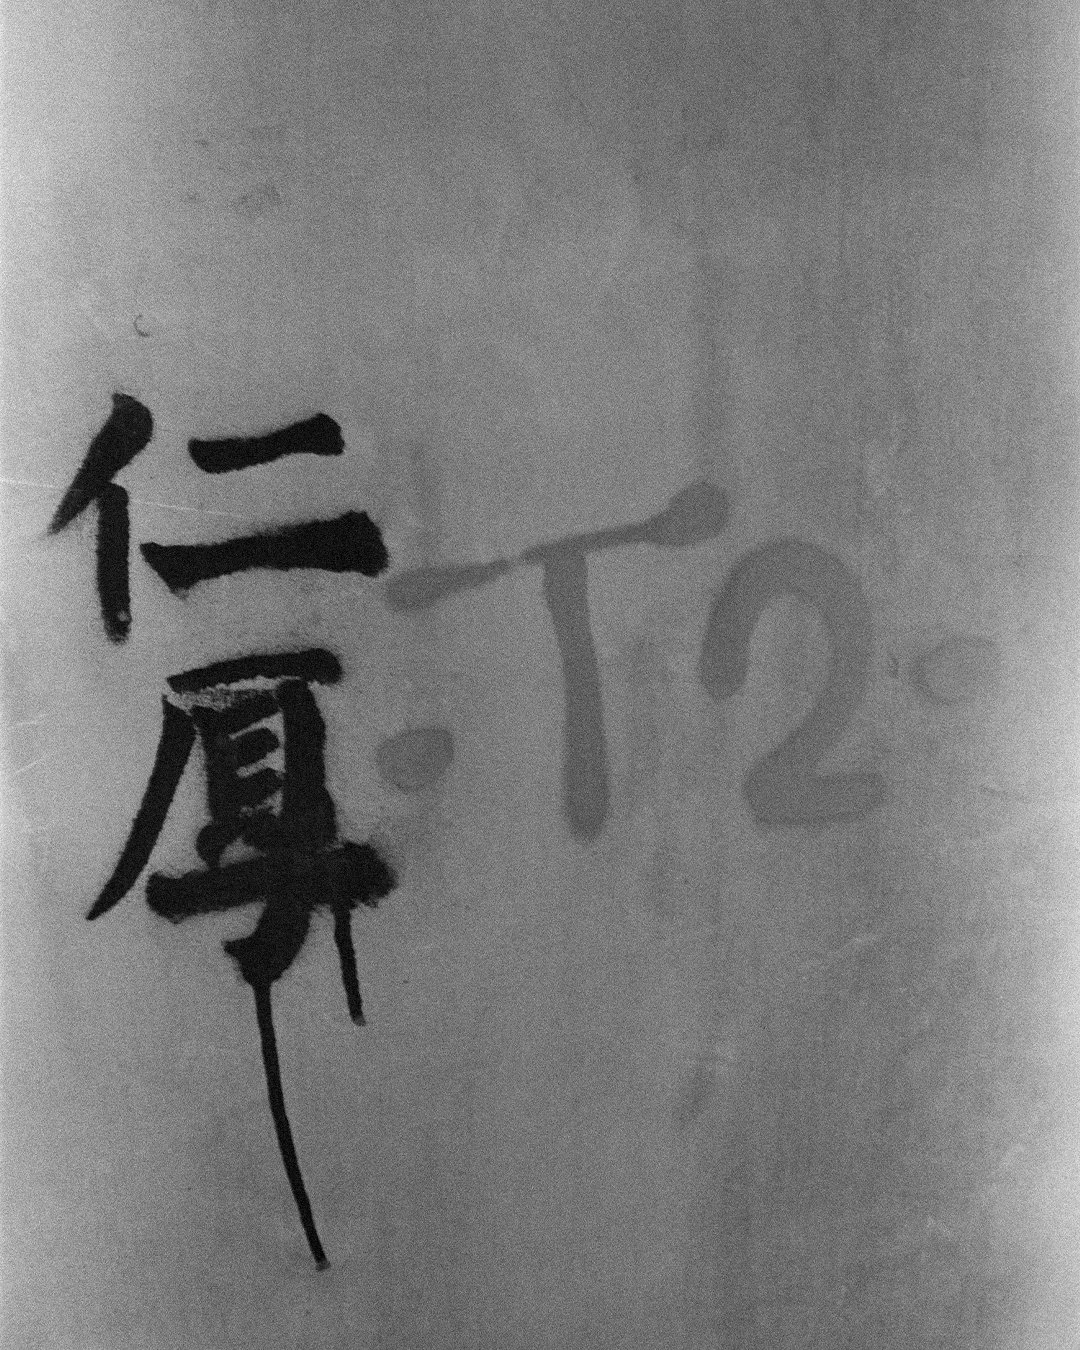 仁厚
·T2·